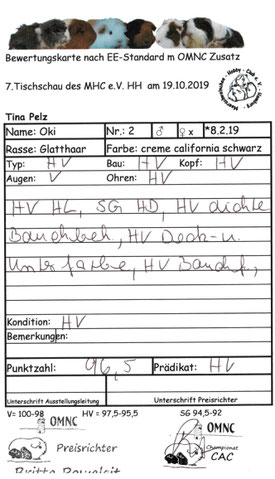 Bewertungskarte nach EE-Standard m OMNC Zusatz
7.Tischschau des MHC e.V. HH am 19.10.2019
Tina Pelz
Name: Oki Nr.: 2 ♂ ♀ x *8.2.19
Rasse: Glatthaar Farbe: creme california schwarz
Typ: HV Bau: HV Kopf: HV
Augen: V Ohren: HV
HV HL, SG HD, HV dichte
Bauchbeh, HV Deck- u.
Unterfarbe, HV Bauchf.,
Kondition: HV
Bemerkungen:
Punktzahl: 96,5 Prädikat: HV
Unterschrift Ausstellungsleitung Unterschrift Preisrichter
V= 100-98 HV = 97,5-95,5 SG 94,5-92
OMNC OMNC
Preisrichter Championat
CAC